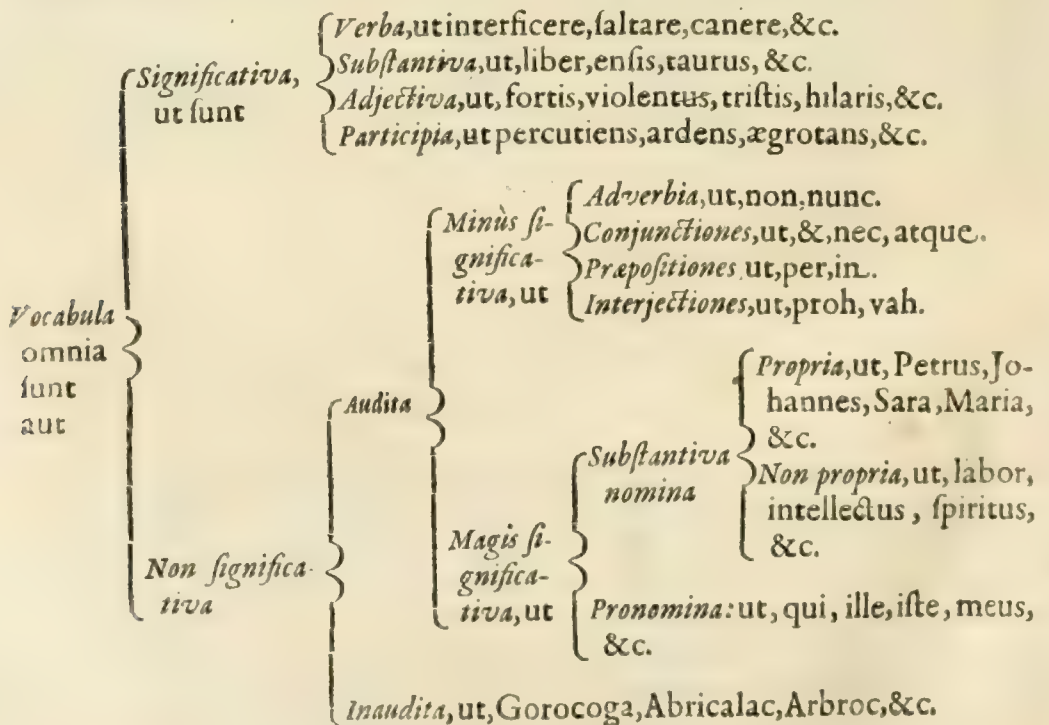 Verba,ut interficere,ſaltare,canere,&c.
Significativa,
ut ſunt
Subſtantiva,ut,liber,enſis,taurus, &c.
Adjectiva,ut, fortis,violentus,triſtis,hilaris,&c.
Participia,ut percutiens,ardens,ægrotans,&c.
Vocabula
omnia
ſunt
aut
Non ſignifica-
tiva
Audita
Minùs ſi-
gnifica-
tiva,ut
Adverbia,ut,non,nunc.
Conjunctiones,ut,&,nec,atque.
Præpoſitiones ut,per,in.
Interjectiones,ut,proh, vah.
Magis ſi-
gnifica-
tiva,ut
Subſtantiva
nomina
Propria,ut, Petrus,Jo-
hannes,Sara,Maria,
&c.
Non propria,ut, labor,
intellectus , ſpiritus,
&c.
Pronomina: ut, qui, ille,iſte, meus,
&c.
Inaudita,ut,Gorocoga,Abricalac,Arbroc,&c.